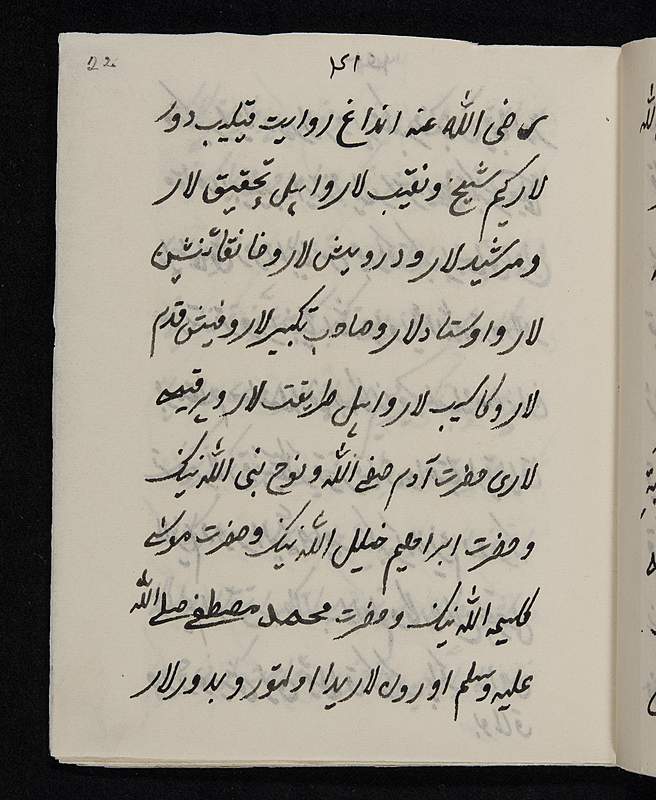 22
۱۵۱
رضی الله عنه انداغ روایت قیلیب دور
لار کیم شیخ ونقیب لار واہل تحقیق لار
ومرشید لار ودرویش لار وخانقانشین
لار واوستاد لار وصاحب تکبیر لار وفیش قدم
لار وکاسیب لار واہل طریقت لار و
لاری حضرت آدم صفی الله ونوح نبی الله نینک
وحضرت ابراهیم خلیل الله نینک وحضرت موسی
کلیمه الله نینک وحضرت محمد مصطفی صلی الله
علیه وسلم اورون لاریدا اولتورو بدور لار